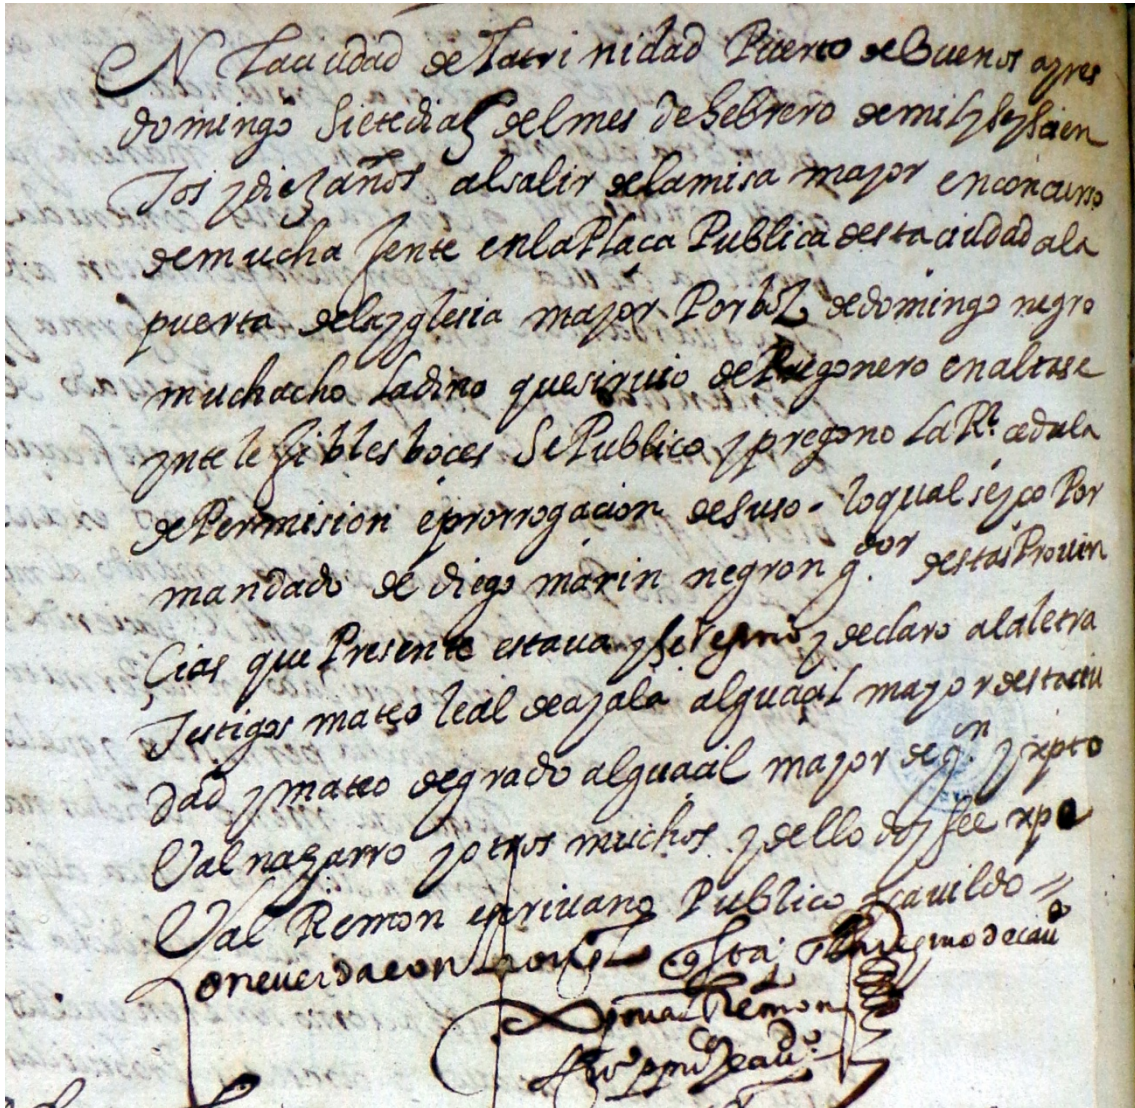 N La ciudad de La trinidad Puerto de Buenos ayres
domingo Siete dias del mes de hebrero de mil y seyscien
Tos y diez años al salir de la misa mayor en concurso
de mucha Jente en la Plaça Publica desta ciudad a la
puerta de la yglesia mayor Por boz de domingo negro
muchacho Ladino que siruio de Pregonero en altas e
ynteleJibles boces Se Publico y pregono La Rl. cedula
de Permision e prorrogacion de suso - lo qual se yço Por
mandado de diego marin negron g.dor destas Prouin
Çias que Presente estaua y se leyo y declaro a la letra
Testigos mateo leal de ayala alguaçil mayor desta ciu
dad y mateo de grado alguacil mayor de g.n y xpto
Val nabarro y otros muchos y dello doy fee xpo
Val Remon escriuano Publico y cauildo
Remon